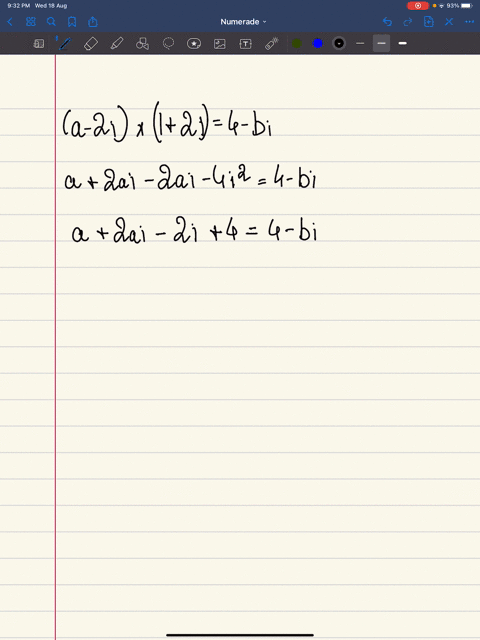 9:32 PM Wed 18 Aug 93%
Numerade
(a-2i) x (1+2i) = 4-bi
a + 2ai - 2ai - 4i² = 4-bi
a + 2ai - 2i + 4 = 4-bi